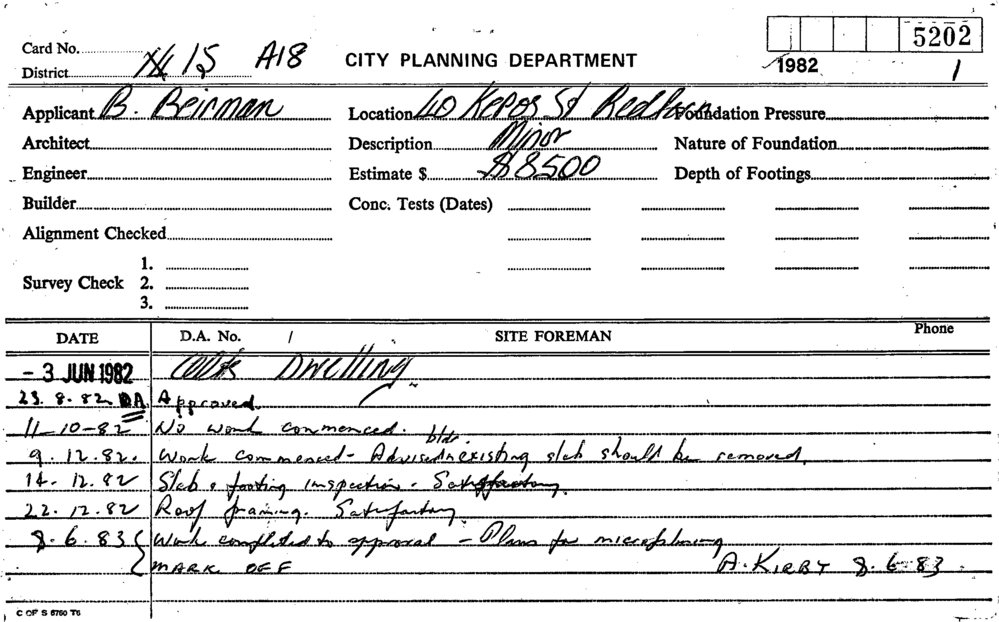 Card No.
District N 15 A18
CITY PLANNING DEPARTMENT
5202
1982 1
Applicant B. Beirman Location 40 Kepos St Redfern Foundation Pressure
Architect Description Minor Nature of Foundation
Engineer Estimate $ $8500 Depth of Footings
Builder Conc. Tests (Dates)
Alignment Checked
1.
Survey Check 2.
3.
DATE D.A. No. / SITE FOREMAN Phone
- 3 JUN 1982 Dwelling
23. 8. 82 DA Approved.
11-10-82 No work commenced.
9. 12. 82. Work commenced - Advised bldr. existing slab should be removed.
14. 12. 82 Slab & footing inspection. Satisfactory.
22. 12. 82 Roof framing. Satisfactory.
8. 6. 83 Work completed to approval - Plans for microfilming
MARK OFF A. KIRBY 8. 6. 83.
C OF S 8760 T6